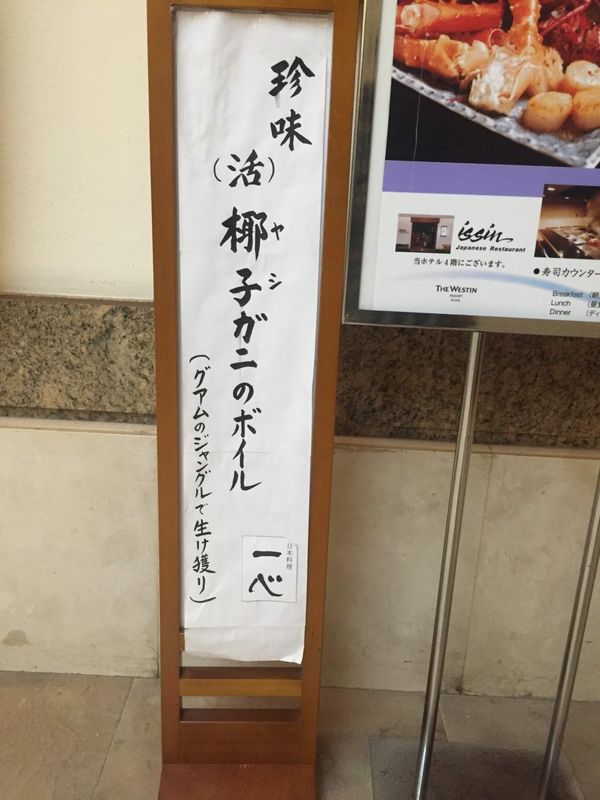 珍味
(活)椰子ガニのボイル
ヤシ
(グアムのジャングルで生け獲り)
日本料理
一心
issin
Japanese Restaurant
当ホテル4階にございます。
THE WESTIN
RESORT
GUAM
●寿司カウンター
Breakfast (朝
Lunch (昼
Dinner (ディ